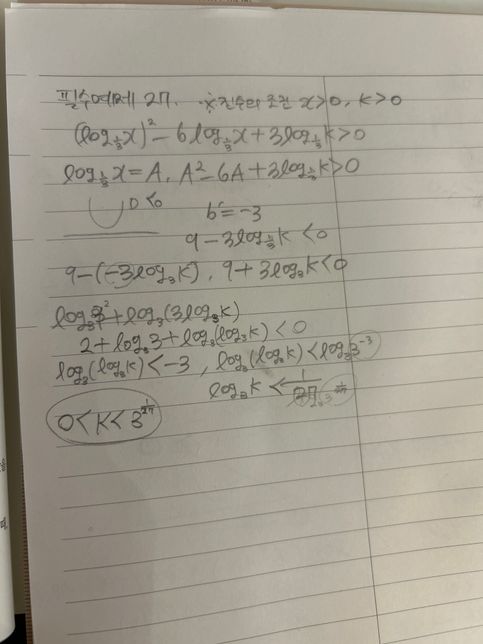 필수예제 27. ※진수의 조건 x>0, k>0
(log_{1/3}x)² - 6log_{1/3}x + 3log_{1/3}k > 0
log_{1/3}x = A, A² - 6A + 3log_{1/3}k > 0
D < 0 b' = -3
9 - 3log_{1/3}k < 0
9 - (-3log₃k), 9 + 3log₃k < 0
log₃3² + log₃(3log₃k)
2 + log₃3 + log₃(log₃k) < 0
log₃(log₃k) < -3, log₃(log₃k) < log₃3⁻³
log₃k < 1/27
0 < k < 3^{1/27}